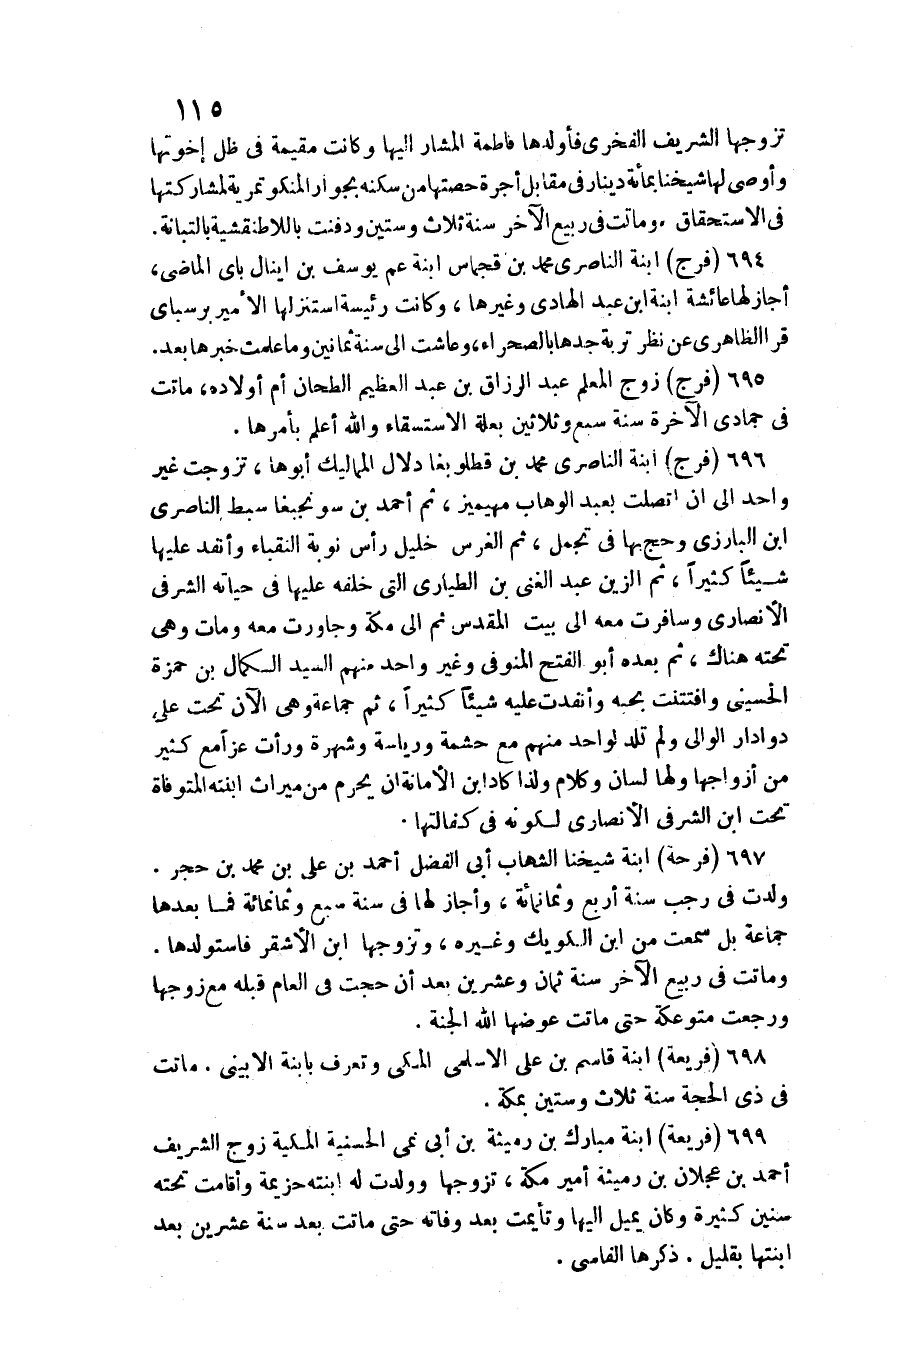 ١١٥
تزوجها الشريف الفخرى فأولدها فاطمة المشار اليها وكانت مقيمة فى ظل إخوتها
وأوصى لها شيخنا بمأئة دينار فى مقابل أجرة حصتها من سكنه بجوار المنكوتمرية لمشاركتها
فى الاستحقاق . وماتت فى ربيع الآخر سنة ثلاث وستين ودفنت باللاطنقشية بالتبانة.
٦٩٤ (فرج) ابنة الناصرى محمد بن قجماس ابنة عم يوسف بن اينال باى الماضى،
أجاز لها عائشة ابنة ابن عبد الهادى وغيرها ، وكانت رئيسة استنزلها الأمير برسباى
قرا الظاهرى عن نظر تربة جدها بالصحراء، وعاشت الى سنة ثمانين وما علمت خبرها بعد.
٦٩٥ (فرج) زوج المعلم عبد الرزاق بن عبد العظيم الطحان أم أولاده، ماتت
فى جمادى الآخرة سنة سبع وثلاثين بعلة الاستسقاء والله أعلم بأمرها .
٦٩٦ (فرج) ابنة الناصرى محمد بن قطلوبغا دلال المماليك أبوها ، تزوجت غير
واحد الى ان اتصلت بعبد الوهاب مهيميز ، ثم أحمد بن سونجبغا سبط الناصرى
ابن البارزى وحج بها فى تجمل ، ثم الغرس خليل رأس نوبة النقباء وأنفد عليها
شيئاً كثيراً ، ثم الزين عبد الغنى بن الطيارى التى خلفه عليها فى حياته الشرفى
الأنصارى وسافرت معه الى بيت المقدس ثم الى مكة وجاورت معه ومات وهى
تحته هناك ، ثم بعده أبو الفتح المنوفى وغير واحد منهم السيد الكمال بن حمزة
الحسينى وافتتنت بحبه وأنفدت عليه شيئاً كثيراً ، ثم جماعة وهى الآن تحت على
دوادار الوالى ولم تلد لواحد منهم مع حشمة ورياسة وشهرة ورأت عزاً مع كثير
من أزواجها ولها لسان وكلام ولذا كاد ابن الأمانة ان يحرم من ميراث ابنته المتوفاة
تحت ابن الشرفى الأنصارى لكونه فى كفالتها .
٦٩٧ (فرحة) ابنة شيخنا الشهاب أبى الفضل أحمد بن على بن محمد بن حجر .
ولدت فى رجب سنة أربع وثمانمائة ، وأجاز لها فى سنة سبع وثمانمائة فما بعدها
جماعة بل سمعت من ابن الكويك وغيره ، وتزوجها ابن الأشقر فاستولدها .
وماتت فى ربيع الآخر سنة ثمان وعشرين بعد أن حجت فى العام قبله مع زوجها
ورجعت متوعكة حتى ماتت عوضها الله الجنة .
٦٩٨ (فريعة) ابنة قاسم بن على الاسلمى المكى وتعرف بابنة الابينى . ماتت
فى ذى الحجة سنة ثلاث وستين بمكة .
٦٩٩ (فريعة) ابنة مبارك بن رميثة بن أبى نمى الحسنية المكية زوج الشريف
أحمد بن عجلان بن رميثة أمير مكة ، تزوجها وولدت له ابنته حزيمة وأقامت تحته
سنين كثيرة وكان يميل اليها وتأيمت بعد وفاته حتى ماتت بعد سنة عشرين بعد
ابنتها بقليل . ذكرها الفاسى .